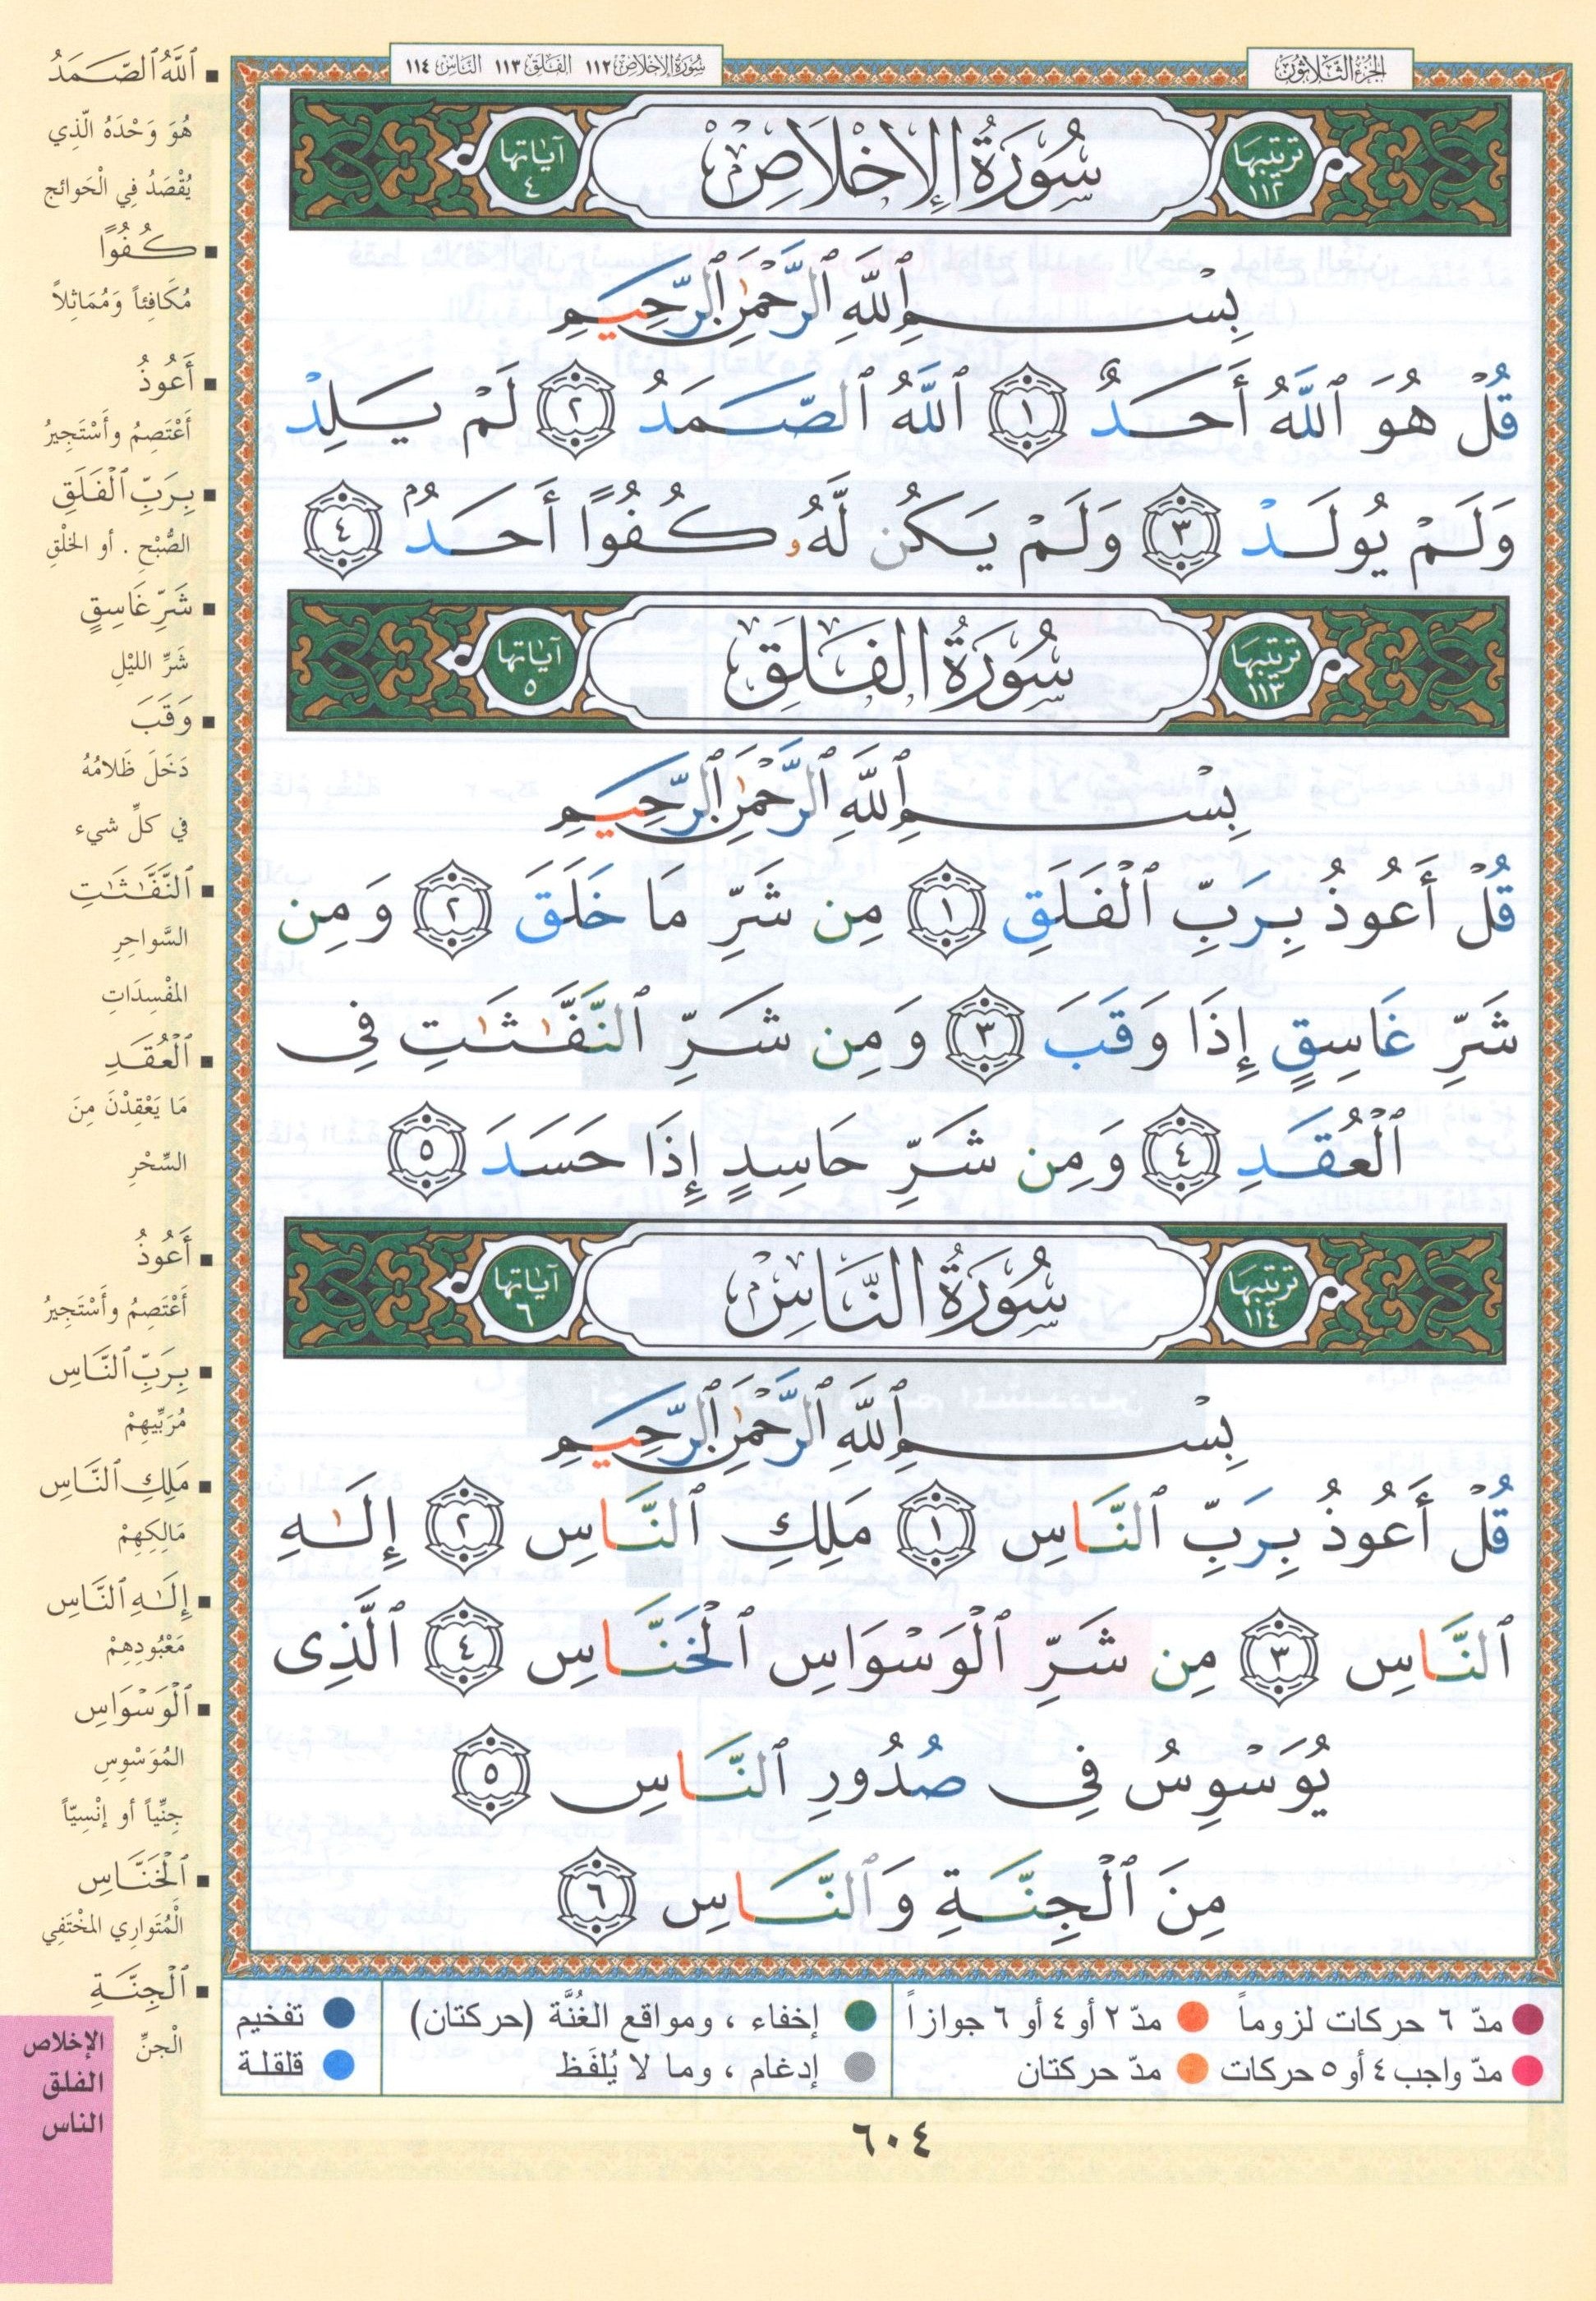 الجزء الثلاثون
سورة الإخلاص ١١٢ الفلق ١١٣ الناس ١١٤
ترتيبها ١١٢
سُورَةُ الإِخْلَاصِ
آياتها ٤
بِسْمِ ٱللَّهِ ٱلرَّحْمَٰنِ ٱلرَّحِيمِ
قُلْ هُوَ ٱللَّهُ أَحَدٌ ١ ٱللَّهُ ٱلصَّمَدُ ٢ لَمْ يَلِدْ
وَلَمْ يُولَدْ ٣ وَلَمْ يَكُن لَّهُۥ كُفُوًا أَحَدٌۢ ٤
ترتيبها ١١٣
سُورَةُ الفَلَقِ
آياتها ٥
بِسْمِ ٱللَّهِ ٱلرَّحْمَٰنِ ٱلرَّحِيمِ
قُلْ أَعُوذُ بِرَبِّ ٱلْفَلَقِ ١ مِن شَرِّ مَا خَلَقَ ٢ وَمِن
شَرِّ غَاسِقٍ إِذَا وَقَبَ ٣ وَمِن شَرِّ ٱلنَّفَّٰثَٰتِ فِى
ٱلْعُقَدِ ٤ وَمِن شَرِّ حَاسِدٍ إِذَا حَسَدَ ٥
ترتيبها ١١٤
سُورَةُ النَّاسِ
آياتها ٦
بِسْمِ ٱللَّهِ ٱلرَّحْمَٰنِ ٱلرَّحِيمِ
قُلْ أَعُوذُ بِرَبِّ ٱلنَّاسِ ١ مَلِكِ ٱلنَّاسِ ٢ إِلَٰهِ
ٱلنَّاسِ ٣ مِن شَرِّ ٱلْوَسْوَاسِ ٱلْخَنَّاسِ ٤ ٱلَّذِى
يُوَسْوِسُ فِى صُدُورِ ٱلنَّاسِ ٥
مِنَ ٱلْجِنَّةِ وَٱلنَّاسِ ٦
▪ ٱللَّهُ ٱلصَّمَدُ
هُوَ وَحْدَهُ الَّذِي
يُقْصَدُ فِي الْحَوائج
▪ كُفُوًا
مُكَافِئاً وَمُمَاثِلاً
▪ أَعُوذُ
أَعْتَصِمُ وأَسْتَجِيرُ
▪ بِرَبِّ ٱلْفَلَقِ
الصُّبْحِ . أو الخَلْقِ
▪ شَرِّ غَاسِقٍ
شَرِّ الليْلِ
▪ وَقَبَ
دَخَلَ ظَلامُهُ
في كلِّ شيء
▪ ٱلنَّفَّٰثَٰتِ
السَّواحِرِ
المفْسِدَاتِ
▪ ٱلْعُقَدِ
مَا يَعْقِدْنَ مِنَ
السِّحْرِ
▪ أَعُوذُ
أَعْتَصِمُ وأَسْتَجِيرُ
▪ بِرَبِّ ٱلنَّاسِ
مُرَبِّيهِمْ
▪ مَلِكِ ٱلنَّاسِ
مَالِكِهِمْ
▪ إِلَٰهِ ٱلنَّاسِ
مَعْبُودِهِمْ
▪ ٱلْوَسْوَاسِ
المُوَسْوِسِ
جِنِّياً أو إنْسِيّاً
▪ ٱلْخَنَّاسِ
الْمُتَوارِي المخْتَفِي
▪ ٱلْجِنَّةِ
الْجنِّ
مدّ ٦ حركات لزوماً مدّ ٢ أو ٤ أو ٦ جوازاً إخفاء ، ومواقع الغُنَّة (حركتان) تفخيم
مدّ واجب ٤ أو ٥ حركات مدّ حركتان إدغام ، وما لا يُلفَظ قلقلة
الإخلاص
الفلق
الناس
٦٠٤